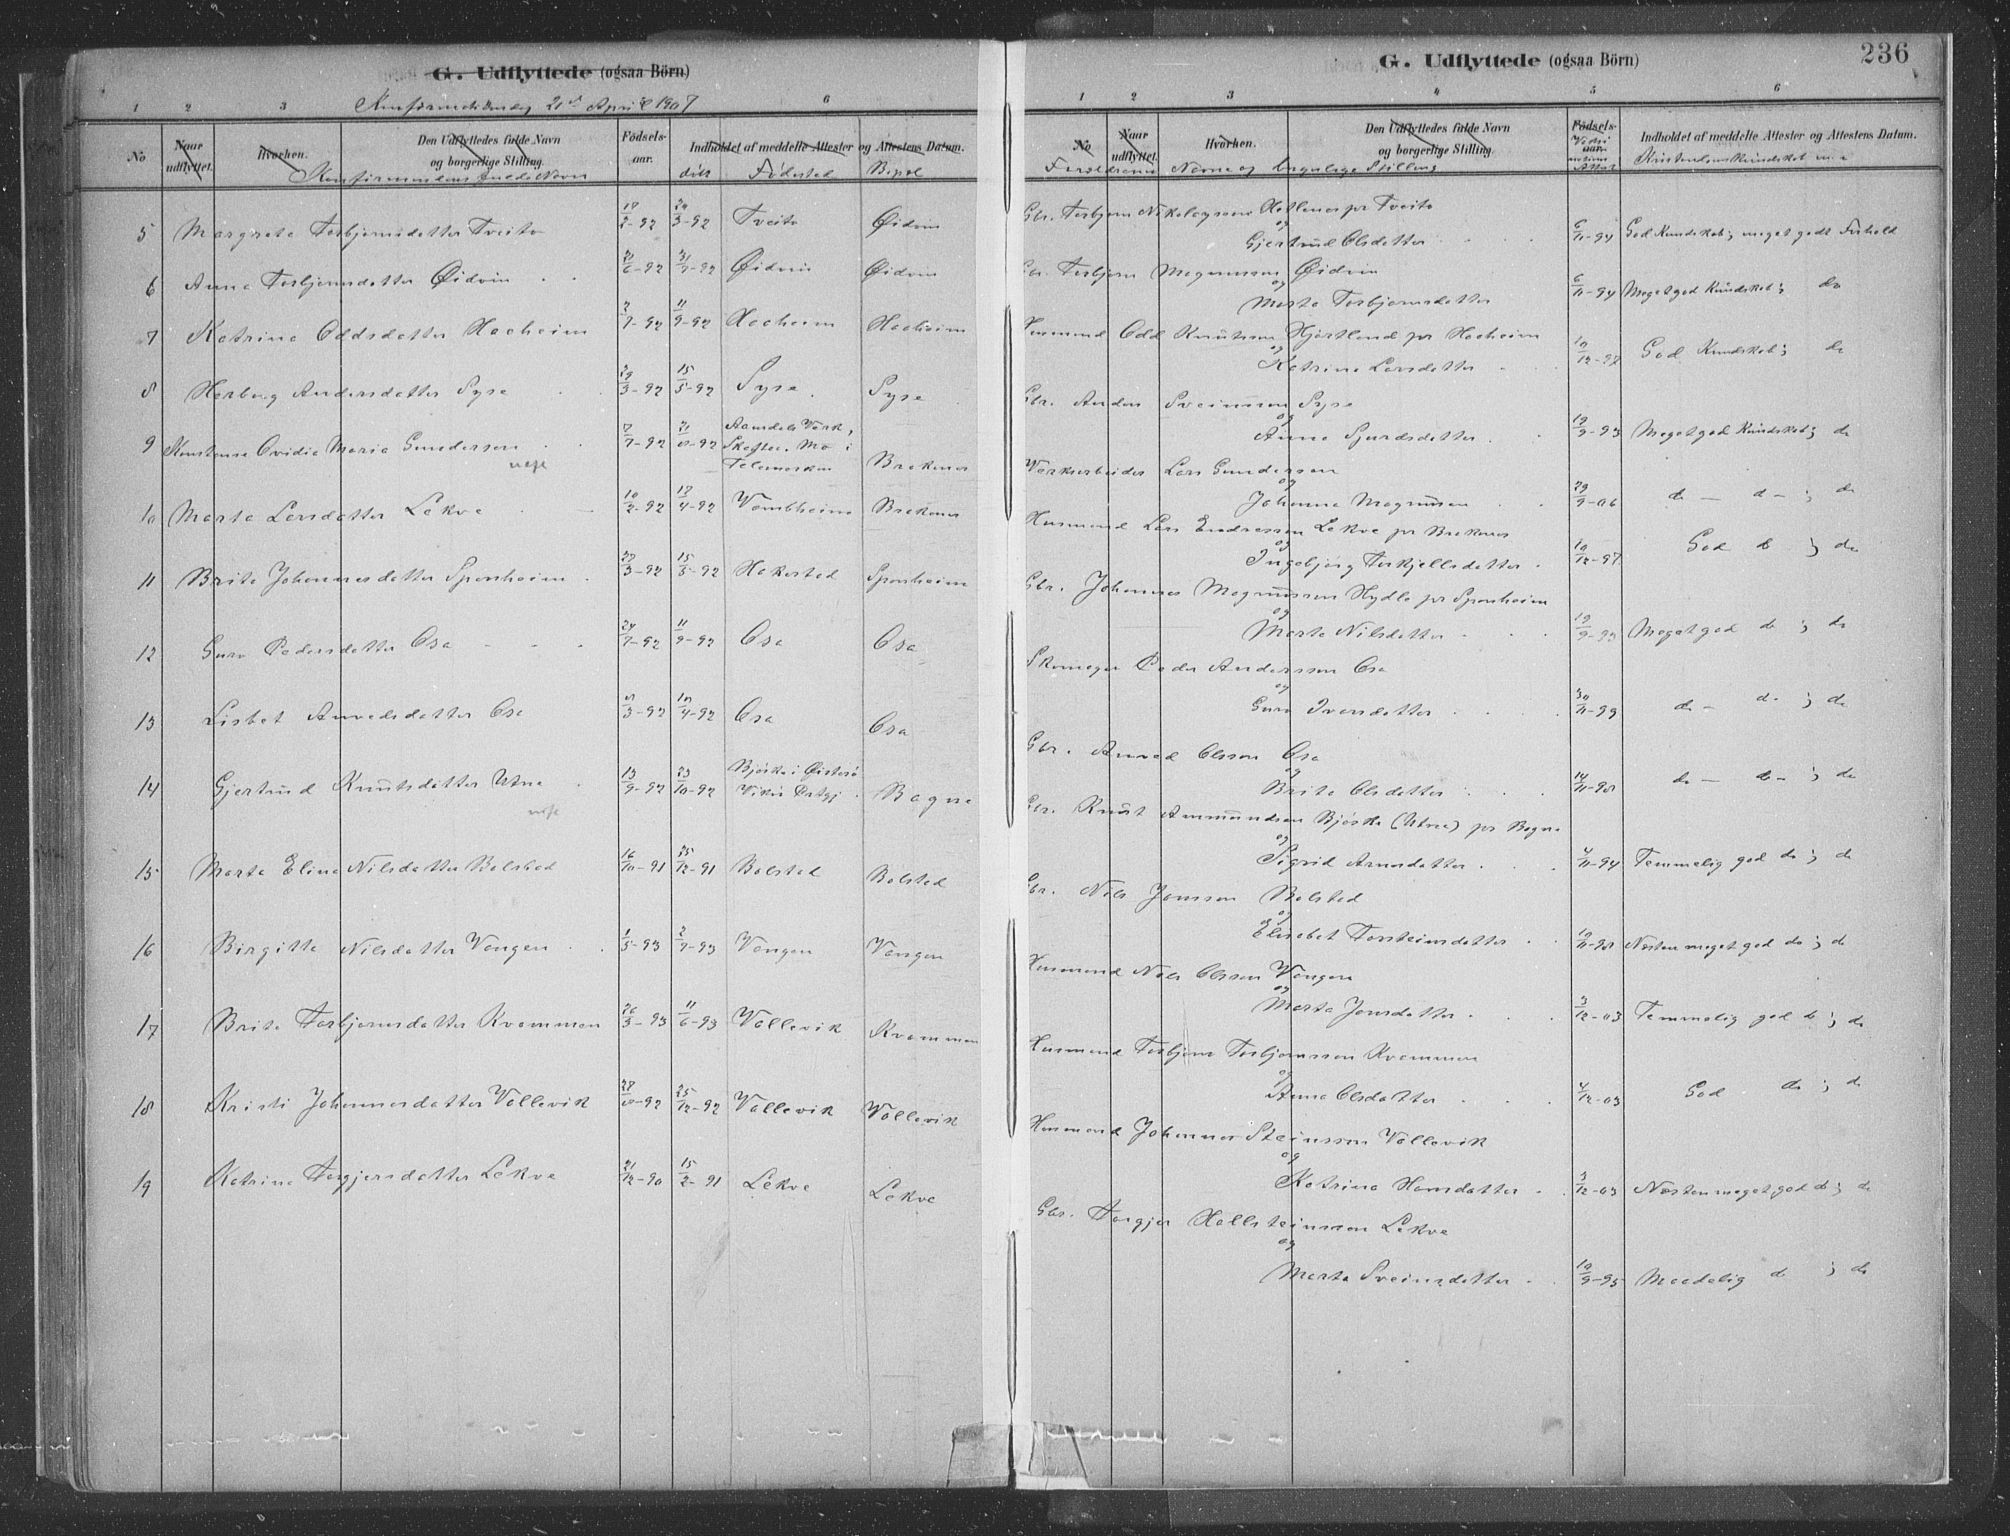 G. Udflyttede (ogsaa Börn)
Konfirmationsdag 21de April 1907
1 2 3 6
No
Naar udflyttet.
Hvorhen.
Den Udflyttedes fulde Navn
og borgerlige Stilling.
Fødsels-
aar.
Indholdet af meddelte Attester og Attestens Datum.
Konfirmandens fulde Navn
Fødested
Bopæl
5 Margreta Torbjørnsdatter Tveito 18/2-92 20/3-92 Tveito Øidvin
6 Anna Torbjørnsdatter Øidvin 21/6-92 31/7-92 Øidvin Øidvin
7 Katrina Oddsdatter Haaheim 2/7-92 11/9-92 Haaheim Haaheim
8 Herborg Andersdatter Syse 29/3-92 15/5-92 Syse Syse
9 Konstanse Ovidia Maria Gunderson 7/7-92 21/8-92 Aamdals Værk,
Skafse. Mo i
Telemarken
Brakanes
10 Marta Larsdatter Lekve 10/2-92 18/4-92 Vambheim Brakanes
11 Brita Johannesdatter Sponheim 27/3-92 15/5-92 Hakestad Sponheim
12 Guro Pedersdatter Osa 24/7-92 11/9-92 Osa Osa
13 Lisbet Anvedsdatter Osa 5/3-92 10/4-92 Osa Osa
14 Gjertrud Knutsdatter Utne 13/9-92 23/10-92 Bjørke i Østesø
Vikør Prtgj. Bagne
15 Marta Elina Nilsdatter Bolstad 16/10-91 25/12-91 Bolstad Bolstad
16 Birgitta Nilsdatter Vangen 1/5-93 2/7-93 Vangen Vangen
17 Brita Torbjørnsdatter Kvammen 26/3-93 11/6-93 Vallevik Kvammen
18 Kristi Johannesdatter Vallevik 28/8-92 25/12-92 Vallevik Vallevik
19 Katrina Torgjersdatter Lekve 21/12-90 15/2-91 Lekve Lekve
236
G. Udflyttede (ogsaa Börn)
1 2 3 4 5 6
No
Naar
udflyttet.
Hvorhen.
Den Udflyttedes fulde Navn
og borgerlige Stilling.
Fødsels-
aar.
Indholdet af meddelte Attester og Attestens Datum.
Forældrenes Navne og borgerlige Stilling
Kristendomskundskab m.m.
Gbr. Torbjørn Nikolaysson Hotlenes pr Tveito
og
Gjertrud Olsdatter 6/11-94 God Kundskab; meget godt Forhold
Gbr. Torbjørn Magnusson Øidvin
og
Marta Torbjørnsdatter 6/11-94 Meget god Kundskab; do
Husmand Odd Knutsson Hjartland pr Haaheim
og
Katrina Larsdatter 10/12-97 God Kundskab; do
Gbr. Anders Sveinsson Syse
og
Anna Sjurdsdatter 19/9-93 Meget god Kundskab; do
Værksarbeider Lars Gunderson
og
Johanna Magnussen 29/9-06 do - do - ; do
Husmand Lars Endresson Lekve pr Brakanes
og
Ingebjørg Torkjellsdatter 10/12-97 God do ; do
Gbr. Johannes Magnusson Hydle pr Sponheim
og
Marta Nilsdatter 19/9-93 Meget god do ; do
Skomager Peder Anderssen Osa
og
Guro Ivarsdatter 30/11-99 do - do ; do
Gbr. Anved Olsson Osa
og
Brita Olsdatter 14/11-98 do - do - ; do
Gbr. Knut Ammundsen Bjørke (Utne) pr Bagne
og
Sigrid Arnesdatter 4/11-94 Temmelig god do ; do
Gbr. Nils Jonsson Bolstad
og
Elisabet Torsteinsdatter 19/11-98 Næsten meget god do ; do
Husmand Nils Olsson Vangen
og
Marta Jonsdatter 3/12-03 Temmelig god do ; do
Husmand Torbjørn Torbjørnsson Kvammen
og
Anna Olsdatter 4/12-03 God do ; do
Husmand Johannes Steinsson Vallevik
og
Katrina Hansdatter 3/12-03 Næsten meget god do ; do
Gbr. Torgjer Hallsteinsson Lekve
og
Marta Sveinsdatter 10/9-95 Maadelig do ; do